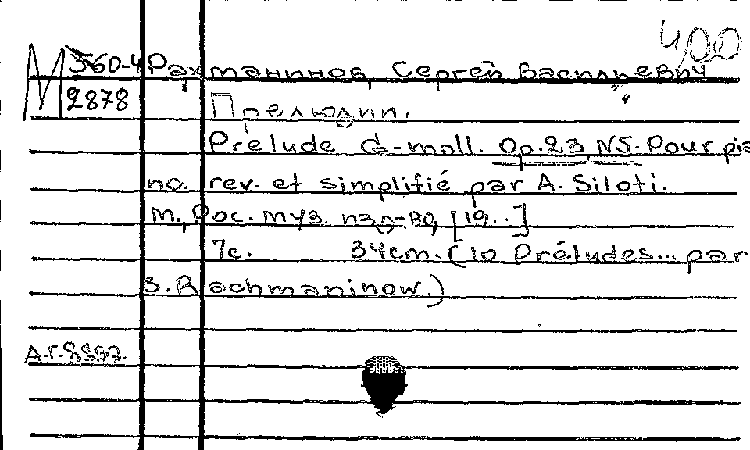 400
М 360-4 Рахманинов, Сергей Васильевич
2878 Прелюдии.
Prélude G-moll. Op.23, N5. Pour pia
no. rev. et simplifié par A. Siloti.
М., Рос. муз. изд-во, [19..]
7с. 34cm. (10 Préludes... par
S. Rachmaninow.)